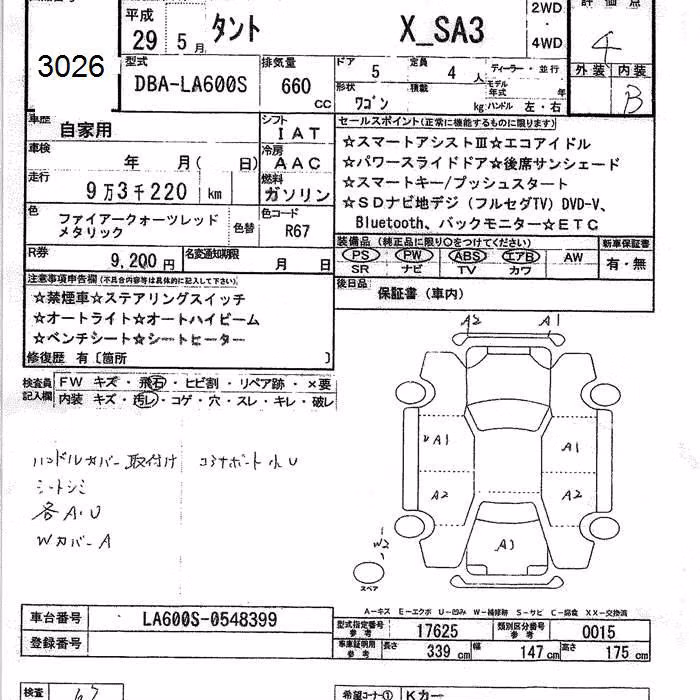 平成
29 5月 タント X_SA3
2WD
・
4WD
評価点
4
3026
型式
DBA-LA600S
排気量
660 CC
ドア 5 定員 4 人
ディーラー・並行
形状 ワゴン 積載 kg
モデル年式 年
ハンドル 左・右
外装 内装
B
車歴 自家用
シフト IAT
車検 年 月( 日)
冷房 AAC
走行 9万3千220 km
燃料 ガソリン
色 ファイアークォーツレッドメタリック
色替
色コード R67
R券 9,200円
名変通知期限 月 日
セールスポイント(正常に機能するものに限ります)
☆スマートアシストⅢ☆エコアイドル
☆パワースライドドア☆後席サンシェード
☆スマートキー/プッシュスタート
☆SDナビ地デジ(フルセグTV)DVD-V、
Bluetooth、バックモニター☆ETC
装備品(純正品に限り○をつけてください)
新車保証書
PS PW ABS エアB AW
SR ナビ TV カワ
有・無
後日品
保証書(車内)
注意事項申告欄(不具合内容等は具体的に記入して下さい)
☆禁煙車☆ステアリングスイッチ
☆オートライト☆オートハイビーム
☆ベンチシート☆シートヒーター
修復歴 有〔箇所 〕
検査員記入欄
FW キズ・飛石・ヒビ割・リペア跡・×要
内装 キズ・汚レ・コゲ・穴・スレ・キレ・破レ
ハンドルカバー取付け コアサポート小U
シートシミ
各A・U
WカバーA
A2 A1
A1 A1
A2 A2
W2 A1
スペア
A-キズ E-エクボ U-凹み W-補修跡 S-サビ C-腐食 XX-交換済
車台番号 LA600S-0548399
登録番号
型式指定番号参考 17625
類別区分番号参考 0015
車庫証明用参考 長さ 339 cm 幅 147 cm 高さ 175 cm
検査
希望コーナー① Kカー